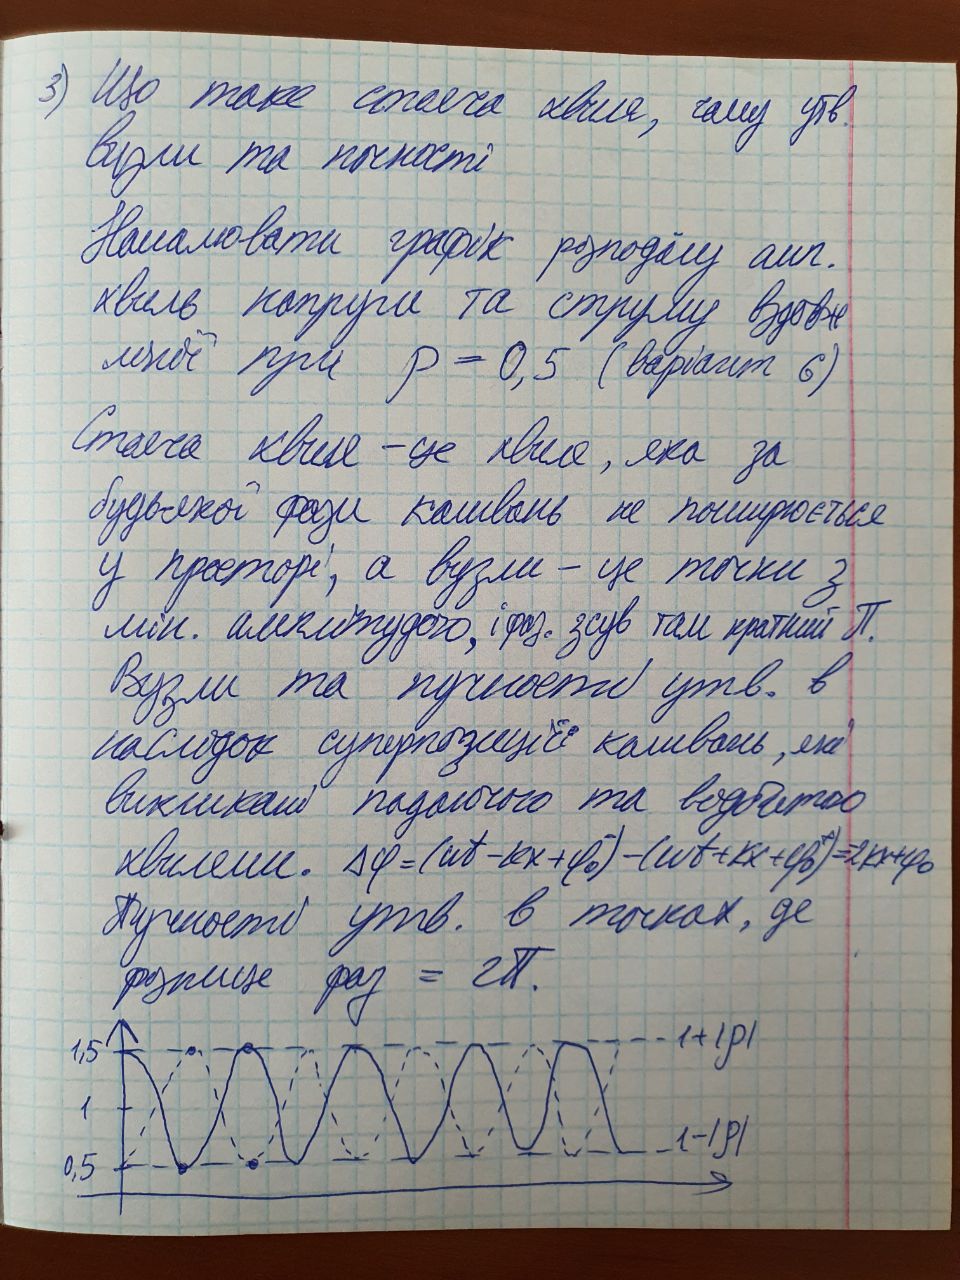 3) Що таке стояча хвиля, чому утв.
вузли та пучності
Намалювати графік розподілу амп.
хвиль напруги та струму вздовж
лінії при ρ = 0,5 (варіант 6)
Стояча хвиля - це хвиля, яка за
будь-якої фази коливань не поширюється
у просторі, а вузли - це точки з
мін. амплітудою, і фаз. зсув там кратний π.
Вузли та пучності утв. в
наслідок суперпозиції коливань, які
викликані падаючою та відбитою
хвилями. Δφ = (ωt - kx + φ₀⁻) - (ωt + kx + φ₀⁺) = 2kx + φ₀
Пучності утв. в точках, де
різниця фаз = 2π.
1,5 1+|ρ|
1
0,5 1-|ρ|